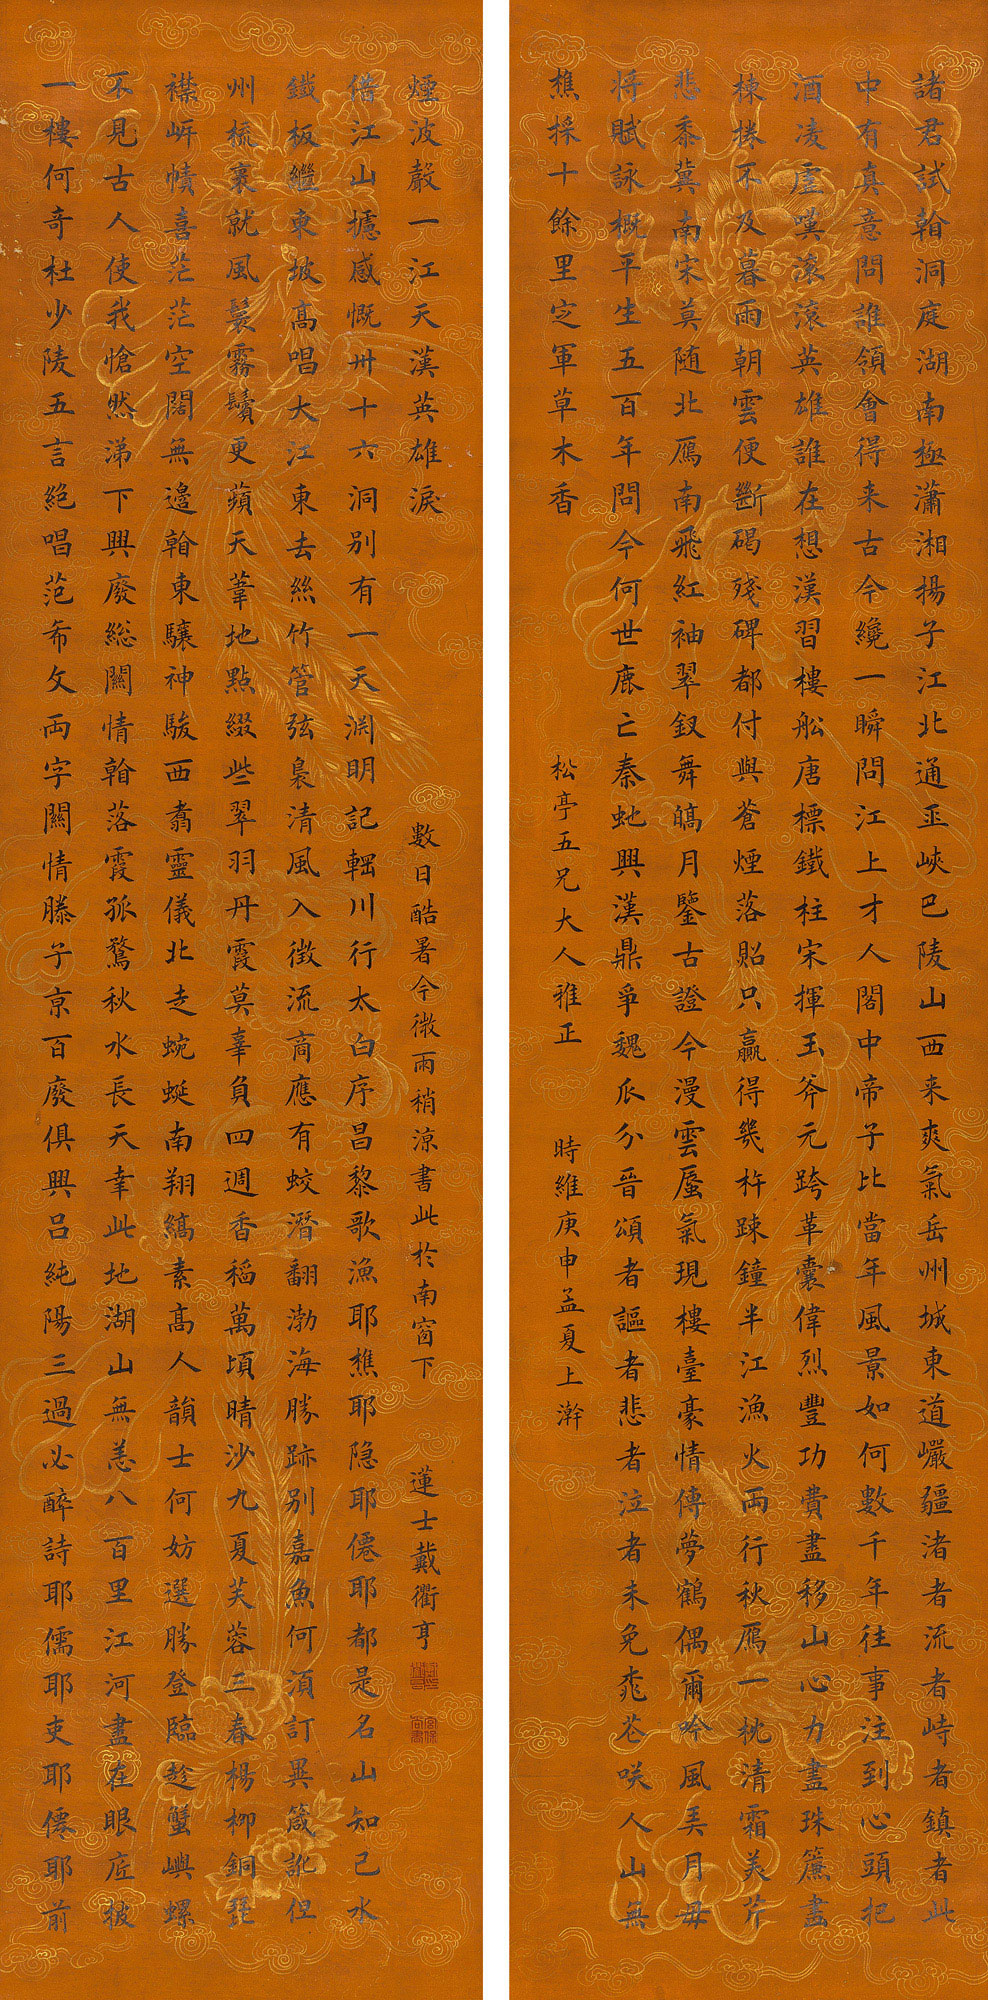 諸君試翰洞庭湖南極瀟湘揚子江北通巫峽巴陵山西来爽氣岳州城東道巖疆渚者流者峙者鎮者此
中有真意問誰領會得来古今纔一瞬問江上才人閣中帝子比當年風景如何數千年往事注到心頭把
酒凌虛嘆滾滾英雄誰在想漢習樓船唐標鐵柱宋揮玉斧元跨革囊偉烈豐功費盡移山心力盡珠簾畫
棟捲不及暮雨朝雲便斷碣殘碑都付與蒼煙落照只贏得幾杵踈鐘半江漁火兩行秋鴈一枕清霜美芹
悲黍冀南宋莫随北鴈南飛紅袖翠釵舞皜月鑒古證今漫雲蜃氣現樓臺豪情傳夢鶴偶爾吟風弄月毋
將賦詠概平生五百年問今何世鹿亡秦虵興漢鼎爭魏瓜分晉頌者謳者悲者泣者未免桃花咲人山無
樵採十餘里定軍草木香
松亭五兄大人雅正
時維庚申孟夏上澣
一樓何奇杜少陵五言絕唱范希文兩字關情滕子京百廢俱興呂純陽三過必醉詩耶儒耶吏耶僊耶前
不見古人使我愴然涕下興廢総關情翰落霞孤鶩秋水長天幸此地湖山無恙八百里江河盡在眼底披
襟岸幘喜茫茫空闊無邊翰東驤神駿西翥靈儀北走蜿蜒南翔縞素高人韻士何妨選勝登臨趁蟹嶼螺
州梳裹就風鬟霧鬢更蘋天葦地點綴些翠羽丹霞莫辜負四週香稻萬頃晴沙九夏芙蓉三春楊柳銅琶
鐵板繼東坡高唱大江東去絲竹管弦裊清風入徵流商應有蛟潛翻渤海勝跡別嘉魚何須訂異箴訛但
借江山攄感慨卅十六洞別有一天渊明記輞川行太白序昌黎歌漁耶樵耶隐耶僊耶都是名山知己水
煙波聲一江天漢英雄淚
數日酷暑今微雨稍涼書此於南窗下
蓮士戴衢亨